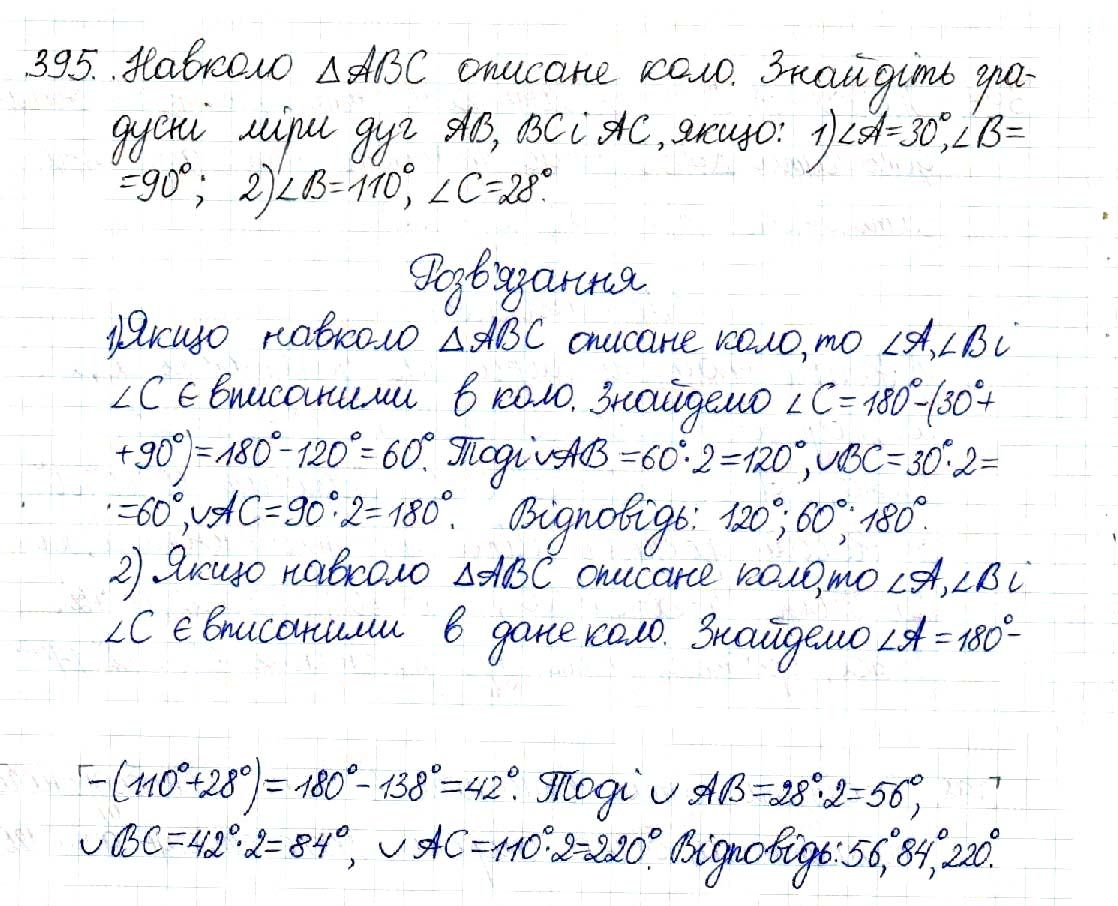 395. Навколо △ABC описане коло. Знайдіть гра-
дусні міри дуг AB, BC і AC, якщо: 1) ∠A=30°, ∠B=
=90°; 2) ∠B=110°, ∠C=28°.
Розв'язання
1) Якщо навколо △ABC описане коло, то ∠A, ∠B і
∠C є вписаними в коло. Знайдемо ∠C=180°-(30°+
+90°)=180°-120°=60°. Тоді ∪AB=60°·2=120°, ∪BC=30°·2=
=60°, ∪AC=90°·2=180°. Відповідь: 120°; 60°; 180°.
2) Якщо навколо △ABC описане коло, то ∠A, ∠B і
∠C є вписаними в дане коло. Знайдемо ∠A=180°-
-(110°+28°)=180°-138°=42°. Тоді ∪ AB=28°·2=56°,
∪BC=42°·2=84°, ∪AC=110°·2=220°. Відповідь: 56°, 84°, 220°.